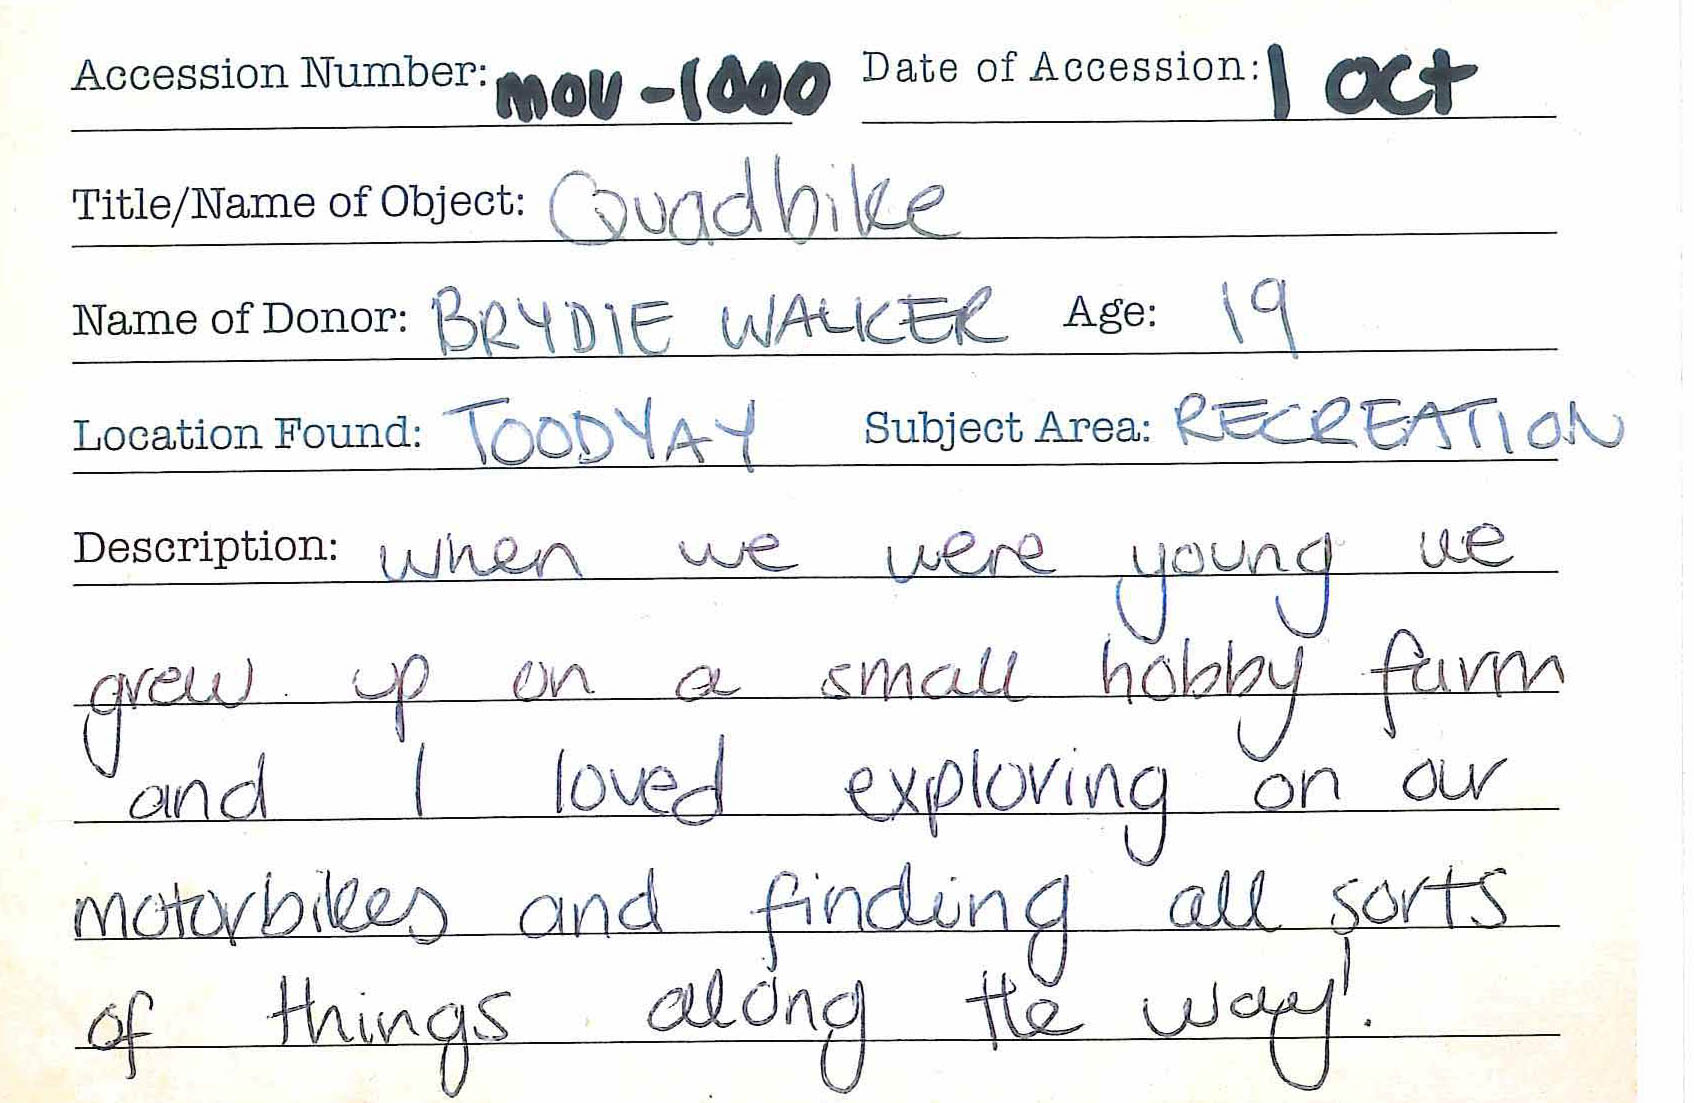 Accession Number: MOU-1000 Date of Accession: 1 Oct
Title/Name of Object: Quadbike
Name of Donor: BRYDIE WALKER Age: 19
Location Found: TOODYAY Subject Area: RECREATION
Description: when we were young we
grew up on a small hobby farm
and I loved exploring on our
motorbikes and finding all sorts
of things along the way!